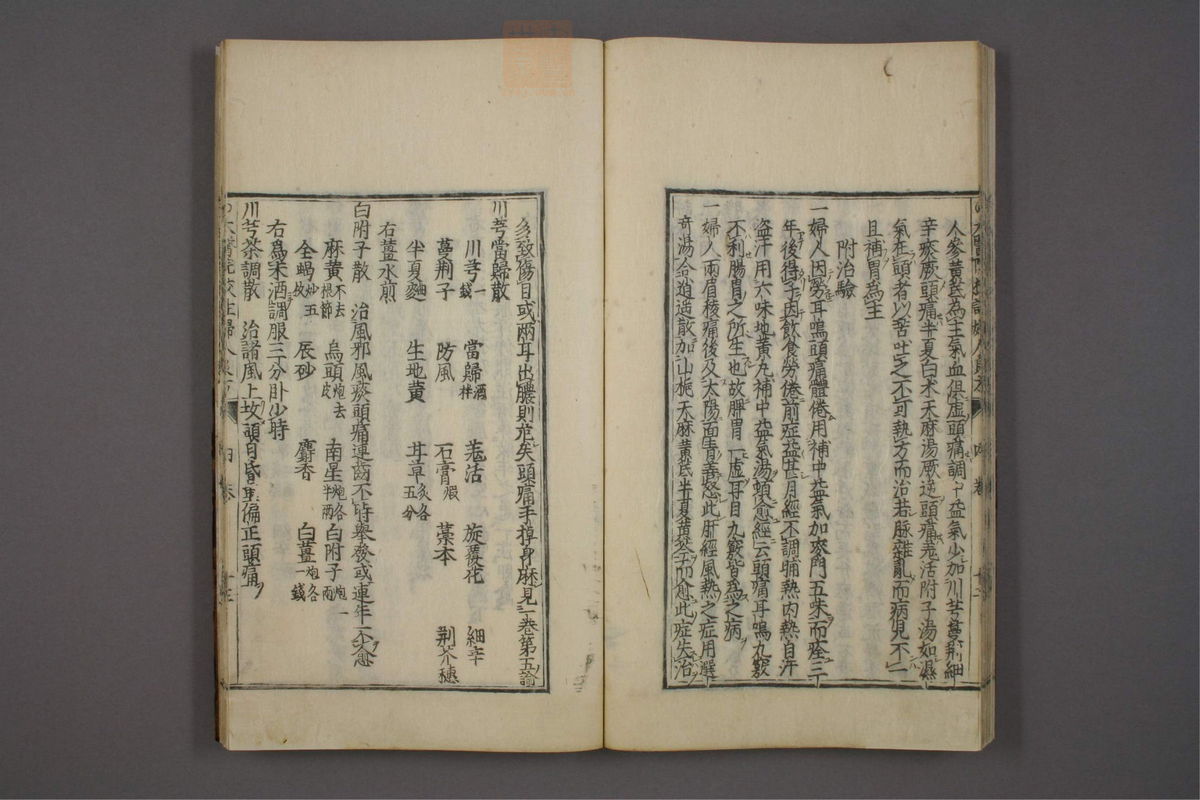 人參黃芪為主氣血俱虛頭痛調中益氣少加川芎蔓荊細
辛痰厥頭痛半夏白朮天麻湯厥逆頭痛羌活附子湯如濕
氣在頭者以苦吐之不可執方而治若脉雜亂而病見不一
且補胃為主
附治驗
一婦人因勞耳鳴頭痛體倦用補中益氣加麥門五味而痊三
年後得子因飲食勞倦前症益甚月經不調晡熱內熱自汗
盜汗用六味地黃丸補中益氣湯頓愈經云頭痛耳鳴九竅
不利腸胃之所生也故脾胃一虛耳目九竅皆為之病
一婦人兩眉棱痛後及太陽面青善怒此肝經風熱之症用選
奇湯合逍遙散加山梔天麻黃芪半夏黃芩而愈此症失治
多致傷目或兩耳出膿則危矣頭痛手掉身麻見三卷第五論
川芎當歸散
川芎一錢 當歸酒拌 羗活 旋覆花 細辛
蔓荊子 防風 石膏煆 藁本 荆芥穗
半夏麯 生地黃 耳草炙各五分
右薑水煎
白附子散 治風邪風痰頭痛連齒不時舉發或連年不愈
麻黃不去根節 烏頭炮去皮 南星炮各半兩 白附子炮一兩
全蝎炒五枚 辰砂 麝香 白薑炮各一錢
右為末酒調服三分卧少時
川芎茶調散 治諸風上攻頭目昏重偏正頭痛
四卷